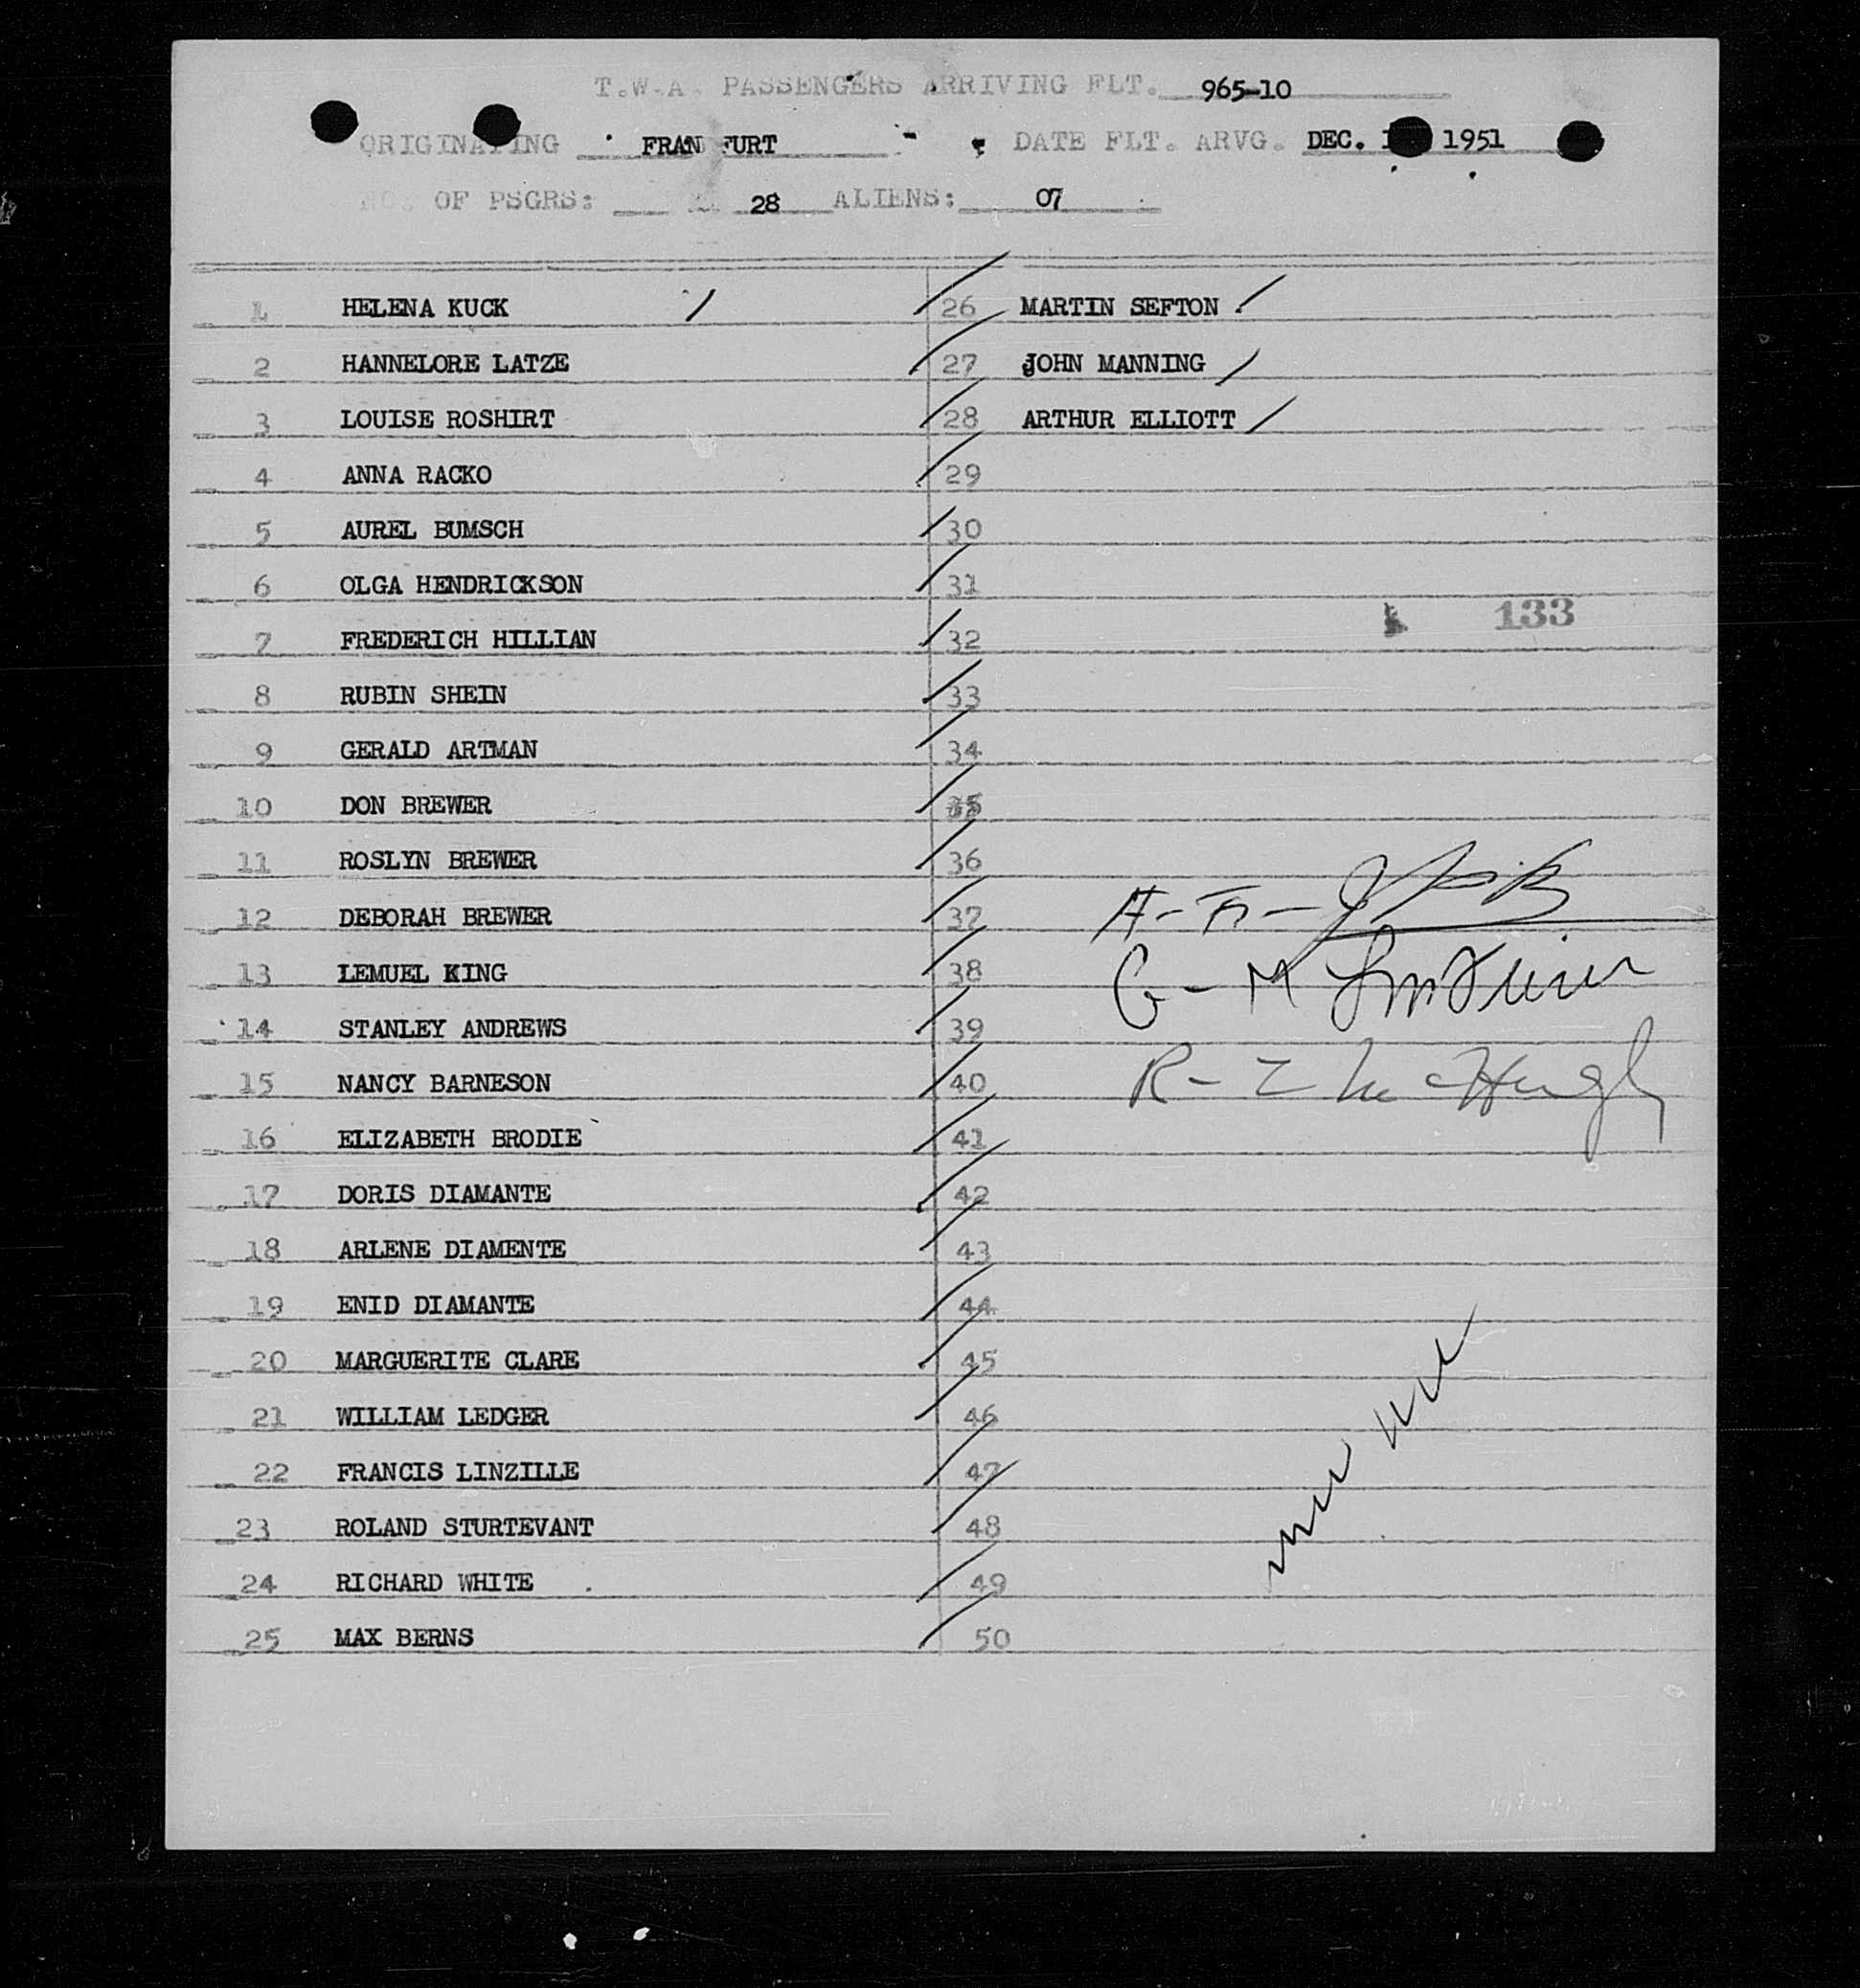 T.W.A. PASSENGERS ARRIVING FLT. 965-10
ORIGINATING FRANKFURT DATE FLT. ARVG. DEC. 1951
NO. OF PSGRS: 28 ALIENS: 07
1 HELENA KUCK 26 MARTIN SEFTON
2 HANNELORE LATZE 27 JOHN MANNING
3 LOUISE ROSHIRT 28 ARTHUR ELLIOTT
4 ANNA RACKO 29
5 AUREL BUMSCH 30
6 OLGA HENDRICKSON 31
133
7 FREDERICH HILLIAN 32
8 RUBIN SHEIN 33
9 GERALD ARTMAN 34
10 DON BREWER 35
11 ROSLYN BREWER 36
12 DEBORAH BREWER 37
A-F-
13 LEMUEL KING 38
G-M
14 STANLEY ANDREWS 39
15 NANCY BARNESON 40
R-Z McHugh
16 ELIZABETH BRODIE 41
17 DORIS DIAMANTE 42
18 ARLENE DIAMENTE 43
19 ENID DIAMANTE 44
20 MARGUERITE CLARE 45
21 WILLIAM LEDGER 46
22 FRANCIS LINZILLE 47
23 ROLAND STURTEVANT 48
24 RICHARD WHITE 49
25 MAX BERNS 50